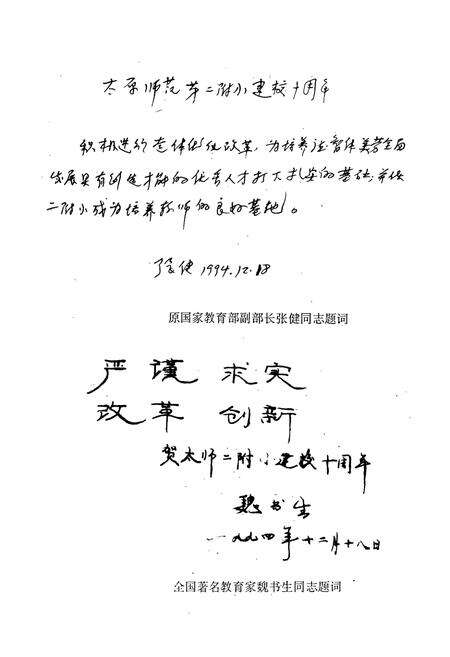 太原师范第二附小建校十周年
积极进行整体优化改革，为培养德智体美劳全面
发展具有创造才能的优秀人才打下扎实的基础，并使
二附小成为培养教师的良好基地。
张健 1994.12.18
原国家教育部副部长张健同志题词
严谨 求实
改革 创新
贺太师二附小建校十周年
魏书生
一九九四年十二月十八日
全国著名教育家魏书生同志题词